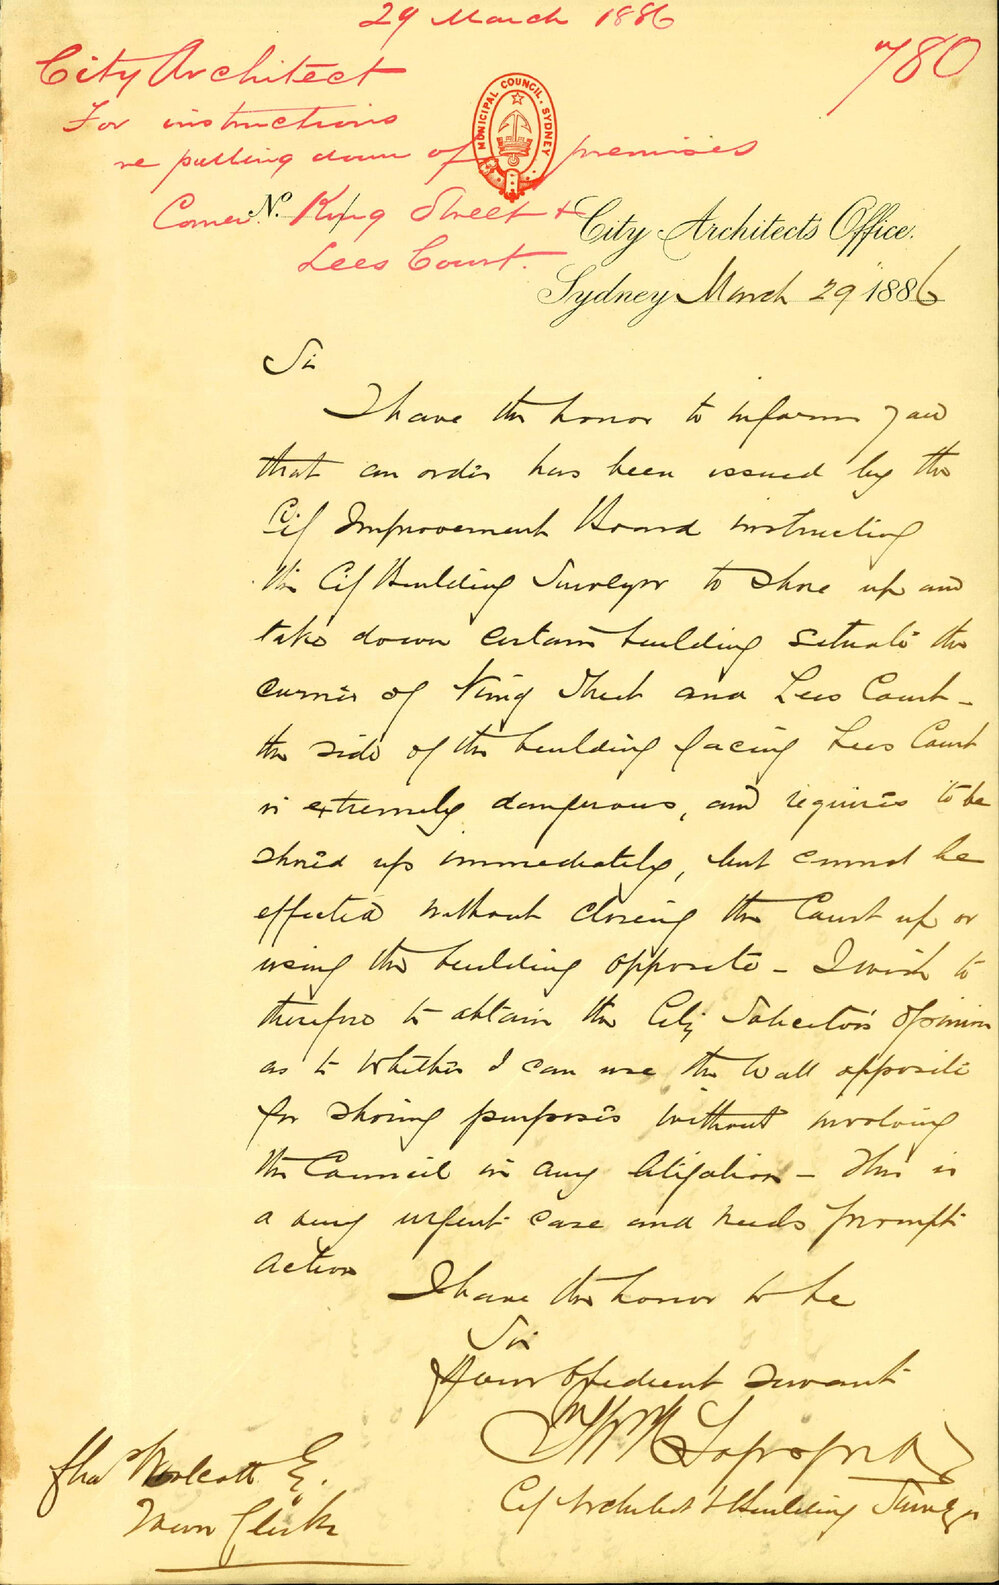 29 March 1886
780
City Architect
For instructions
re pulling down of premises
Corner King Street &
Lees Court.
MUNICIPAL COUNCIL. SYDNEY
No.
City Architect's Office.
Sydney March 29 1886
Sir
I have the honor to inform you
that an order has been issued by the
City Improvement Board instructing
the City Building Surveyor to shore up and
take down certain building situate the
corner of King Street and Lees Court –
the side of the building facing Lees Court
is extremely dangerous, and requires to be
shored up immediately, but cannot be
effected without closing the Court up or
using the building opposite – I wish to
therefore to obtain the City Solicitor's opinion
as to whether I can use the wall opposite
for shoring purposes without involving
the Council in any litigation – This is
a very urgent case and needs prompt
action
I have the honor to be
Sir
Your Obedient Servant
Sapsford
City Architect & Building Surveyor
Chas Woolcott Esq.
Town Clerk